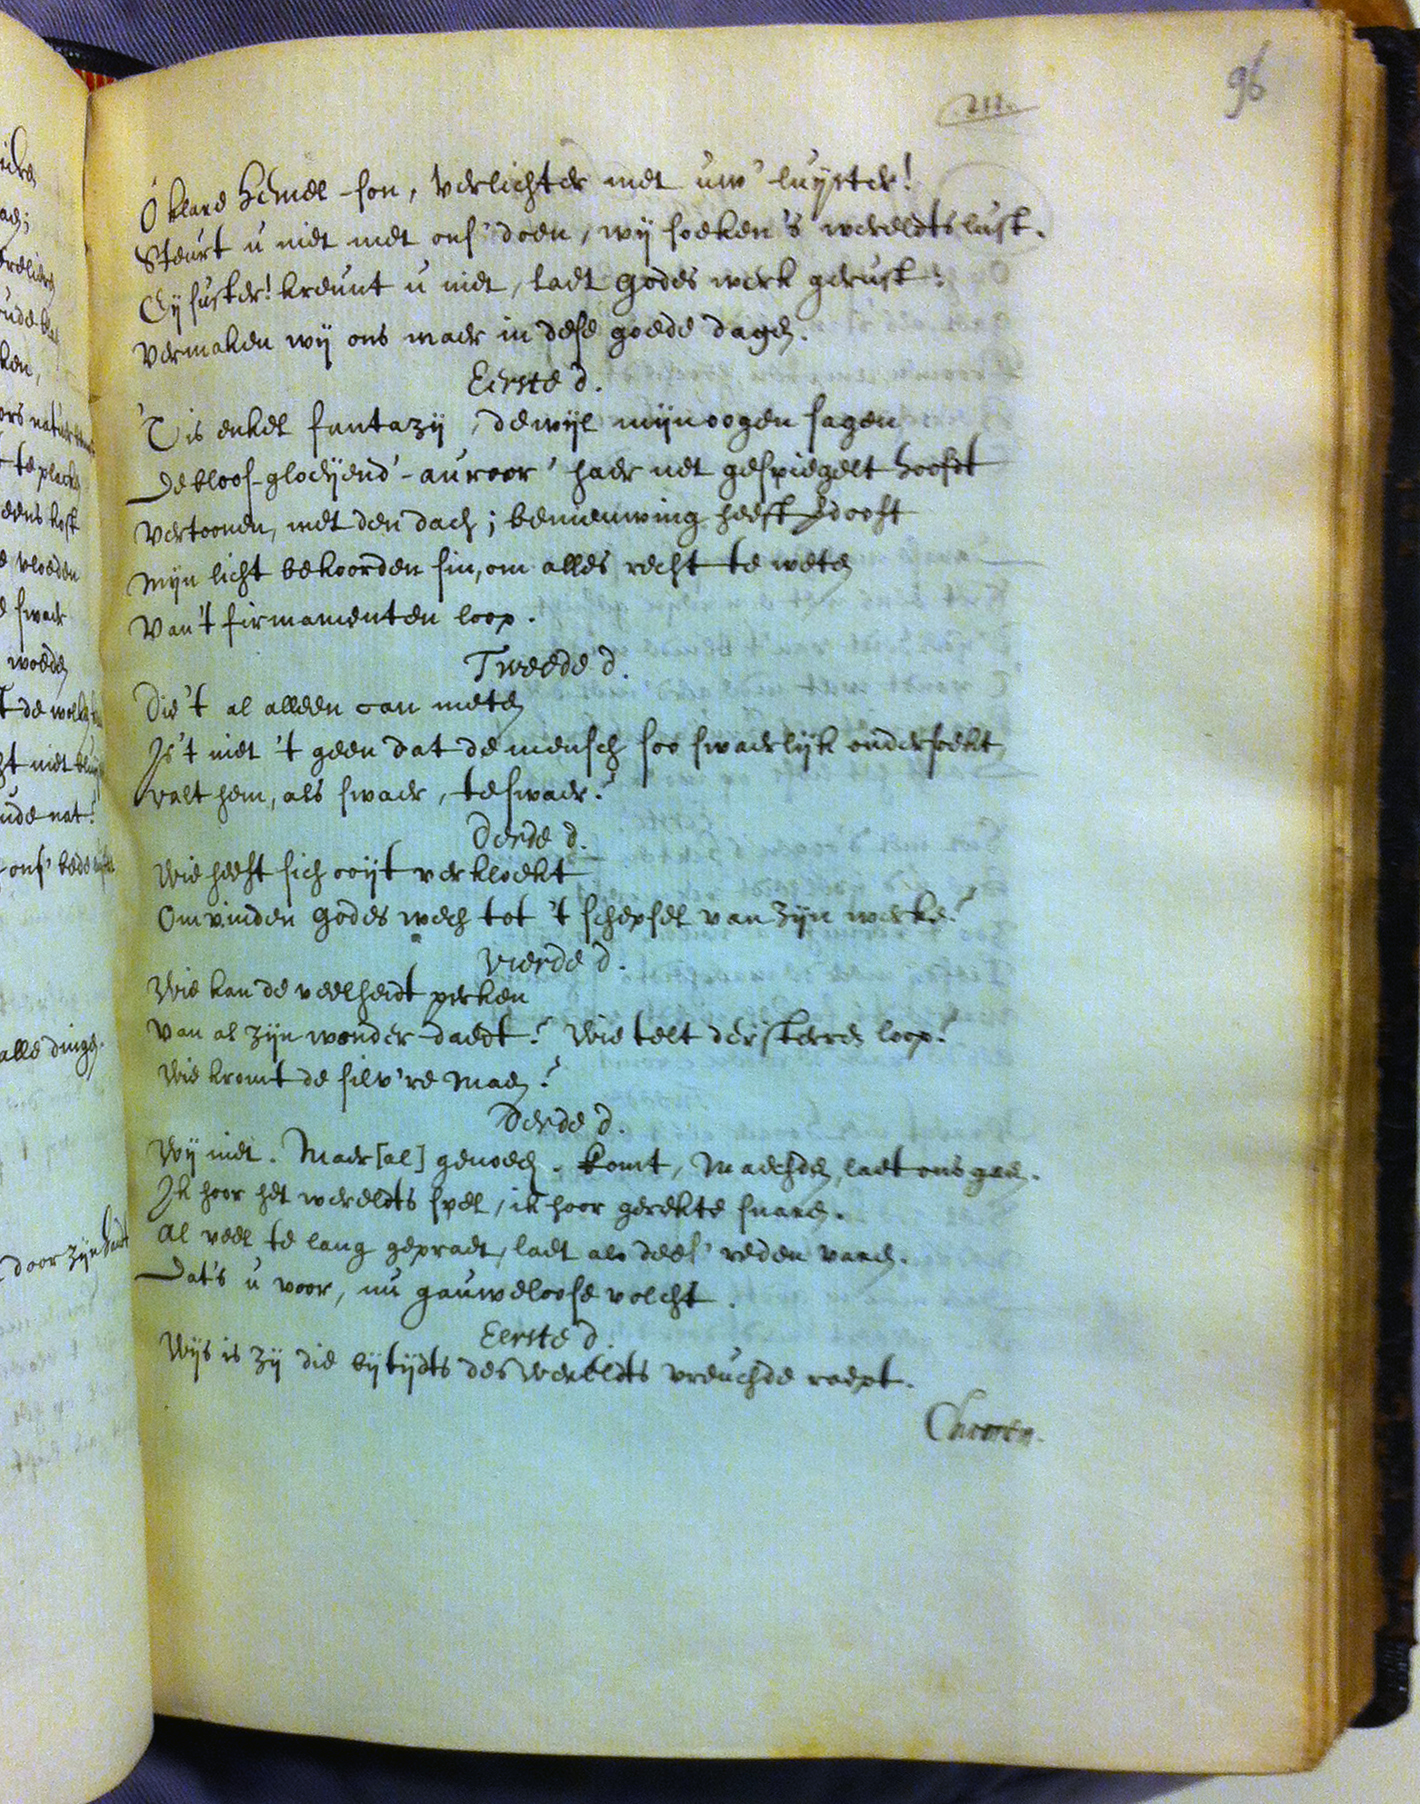 96
111.
O klare Hemel-son, verlichter met uw' luyster!
Steurt u niet met ons' doen, wij soeken 's wereldts lust.
Eij suster! kreunt u niet, laet Godes werk gerust:
Vermaken wij ons maer in dese goede dagen.
Eerste d.
'Tis enkel fantazij, dewijl mijn oogen sagen
De bloos-gloeijend'-auroor' haer net gespiegelt hooft
Vertoonen, met den dach; benieuwing heeft
Mijn licht bekoorden sin, om alles recht te weten
Van 't firmamenten loop.
Tweede d.
Die 't al alleen can meten
Is 't niet 't geen dat de mensch soo swaerlijk ondersoekt
valt hem, als swaer, te swaer?
Derde d.
Wie heeft sich ooijt verkloekt
Om vinden Godes wech tot 't schepsel van zijn werke?
Vierde d.
Wie kan de veelheidt perken
Van al zijn wonder-daedt? Wie telt der sterren loop?
Wie kromt de silv're Maen?
Derde d.
Wij niet. Maer [al] genoech. komt, Maechden, laet ons gaen.
Ik hoor het wereldts spel, ik hoor gerekte snaren.
Al veel te lang gepraet, laet als dees' reden varen.
Dat's u voor, nu gauweloose volcht.
Eerste d.
Wijs is zij die bijtijdts des Wereldts vreuchde raept.